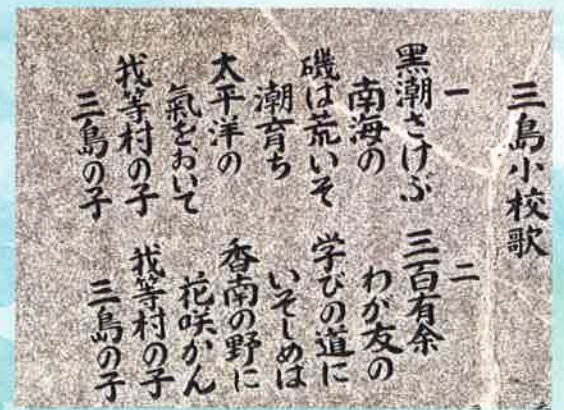 三島小校歌
一
黒潮さけぶ
南海の
磯は荒いそ
潮育ち
太平洋の
氣をおいて
我等村の子
三島の子
二
三百有余
わが友の
学びの道に
いそしめば
香南の野に
花咲かん
我等村の子
三島の子